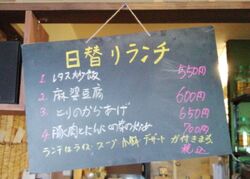 日替リランチ
1. レタス炒飯 550円
2. 麻婆豆腐 600円
3. とりのからあげ 650円
4. 豚肉とにんにくの芽の炒め 700円
ランチはライス スープ 小鉢 デザート が付きます
税込